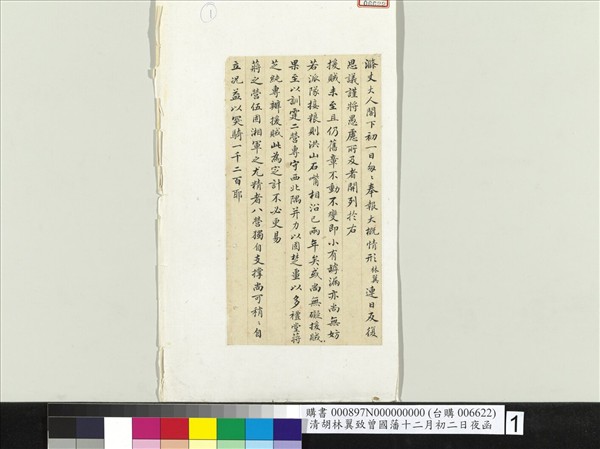 ①
滌丈大人閣下初一日匆〻奉報大概情形林翼連日反復
思議謹將愚慮所及者開列於右
援賊未至且仍舊章不動不變即小有罅漏亦尚無妨
若派隊接粮則洪山石嘴相沿已兩年矣或尚無礙援賊
果至以訓霆二營專守西北隅并力以固楚壘以多禮堂蔣
芝純專辦援賊此為定計不必更易
蔣之營伍固湘軍之尤精者八營獨自支撐尚可稍〻自
立況益以突騎一千二百耶
購書 000897N000000000 (台購 006622)
清胡林翼致曾國藩十二月初二日夜函
1